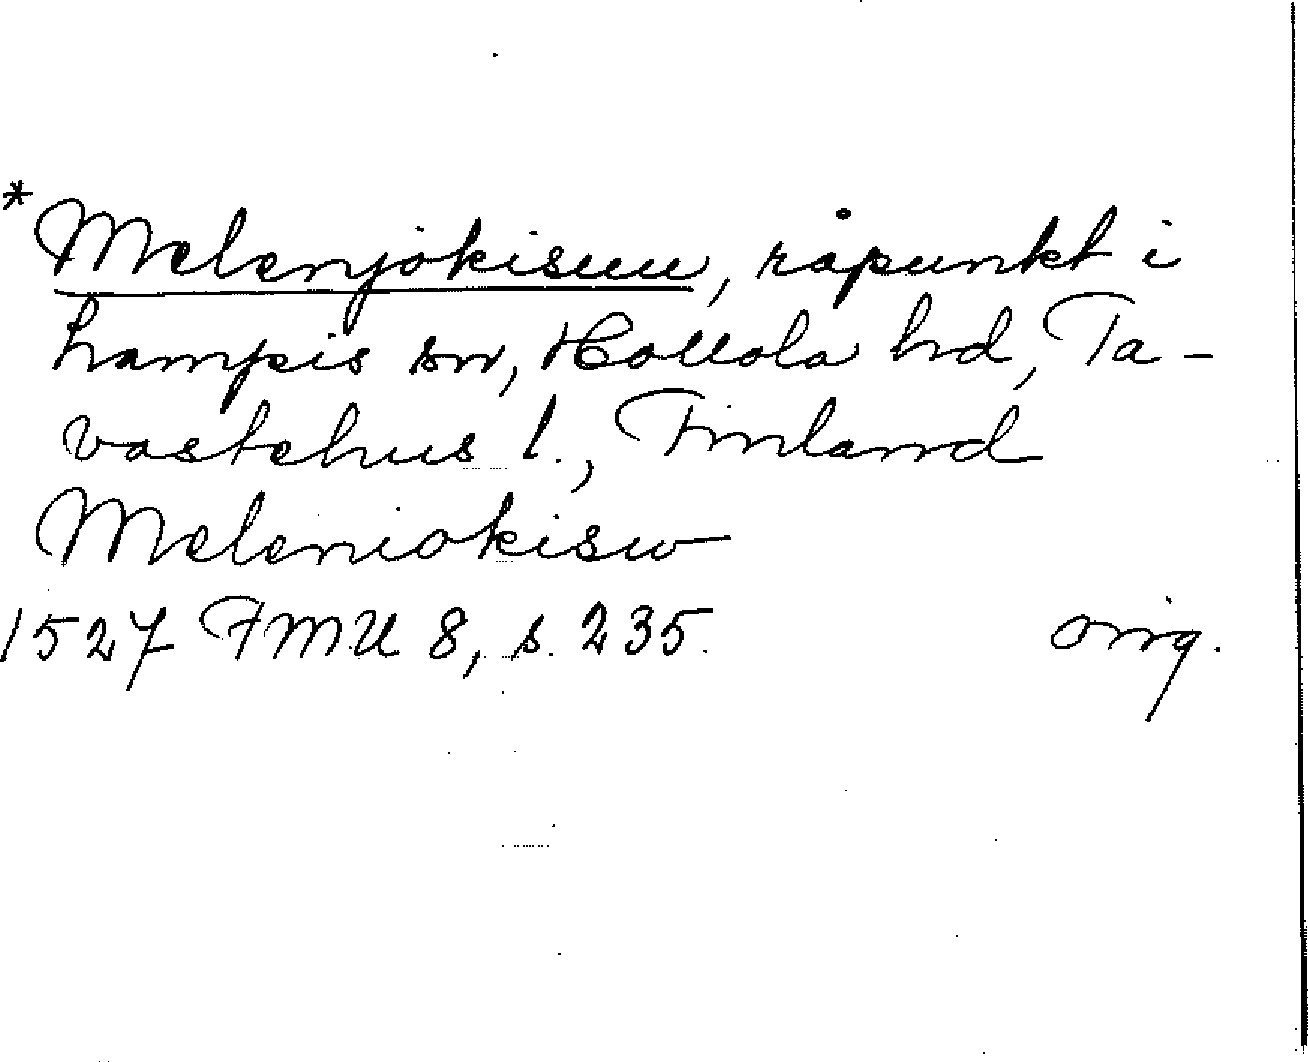 * Melenjokisuu, råpunkt i
Lampis sn, Hollola hd, Ta-
vastehus l., Finland
Meleniokisw
1527 FMU 8, s. 235. orig.